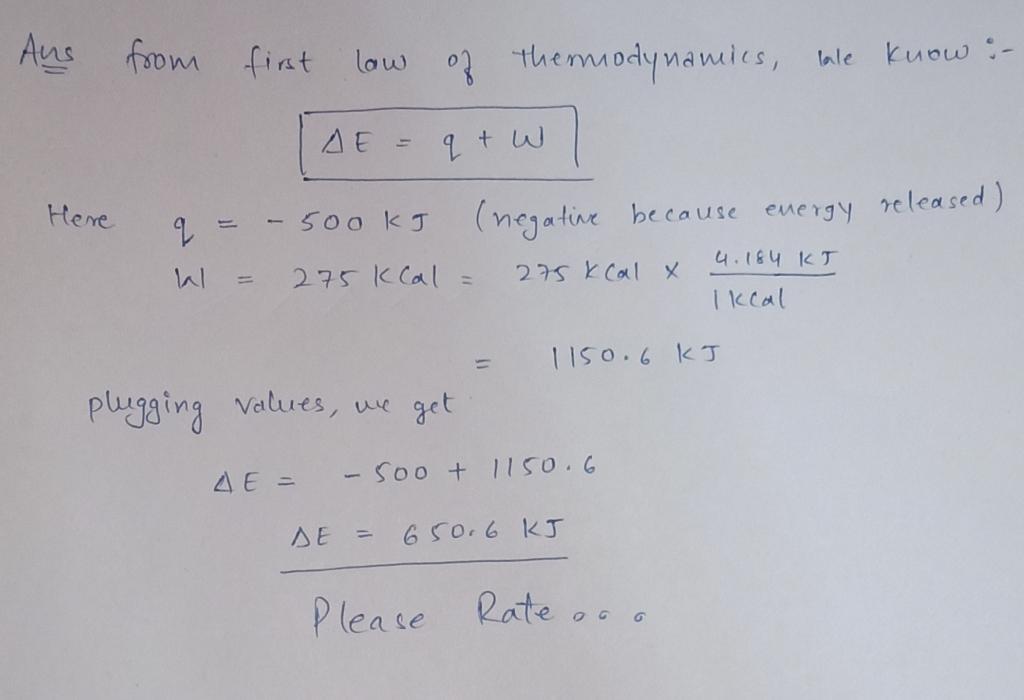 Ans from first law of thermodynamics, we know :-
ΔE = q + W
Here q = - 500 kJ (negative because energy released)
W = 275 kCal = 275 kCal × 4.184 kJ / 1 kcal
= 1150.6 kJ
plugging values, we get
ΔE = - 500 + 1150.6
ΔE = 650.6 kJ
Please Rate...